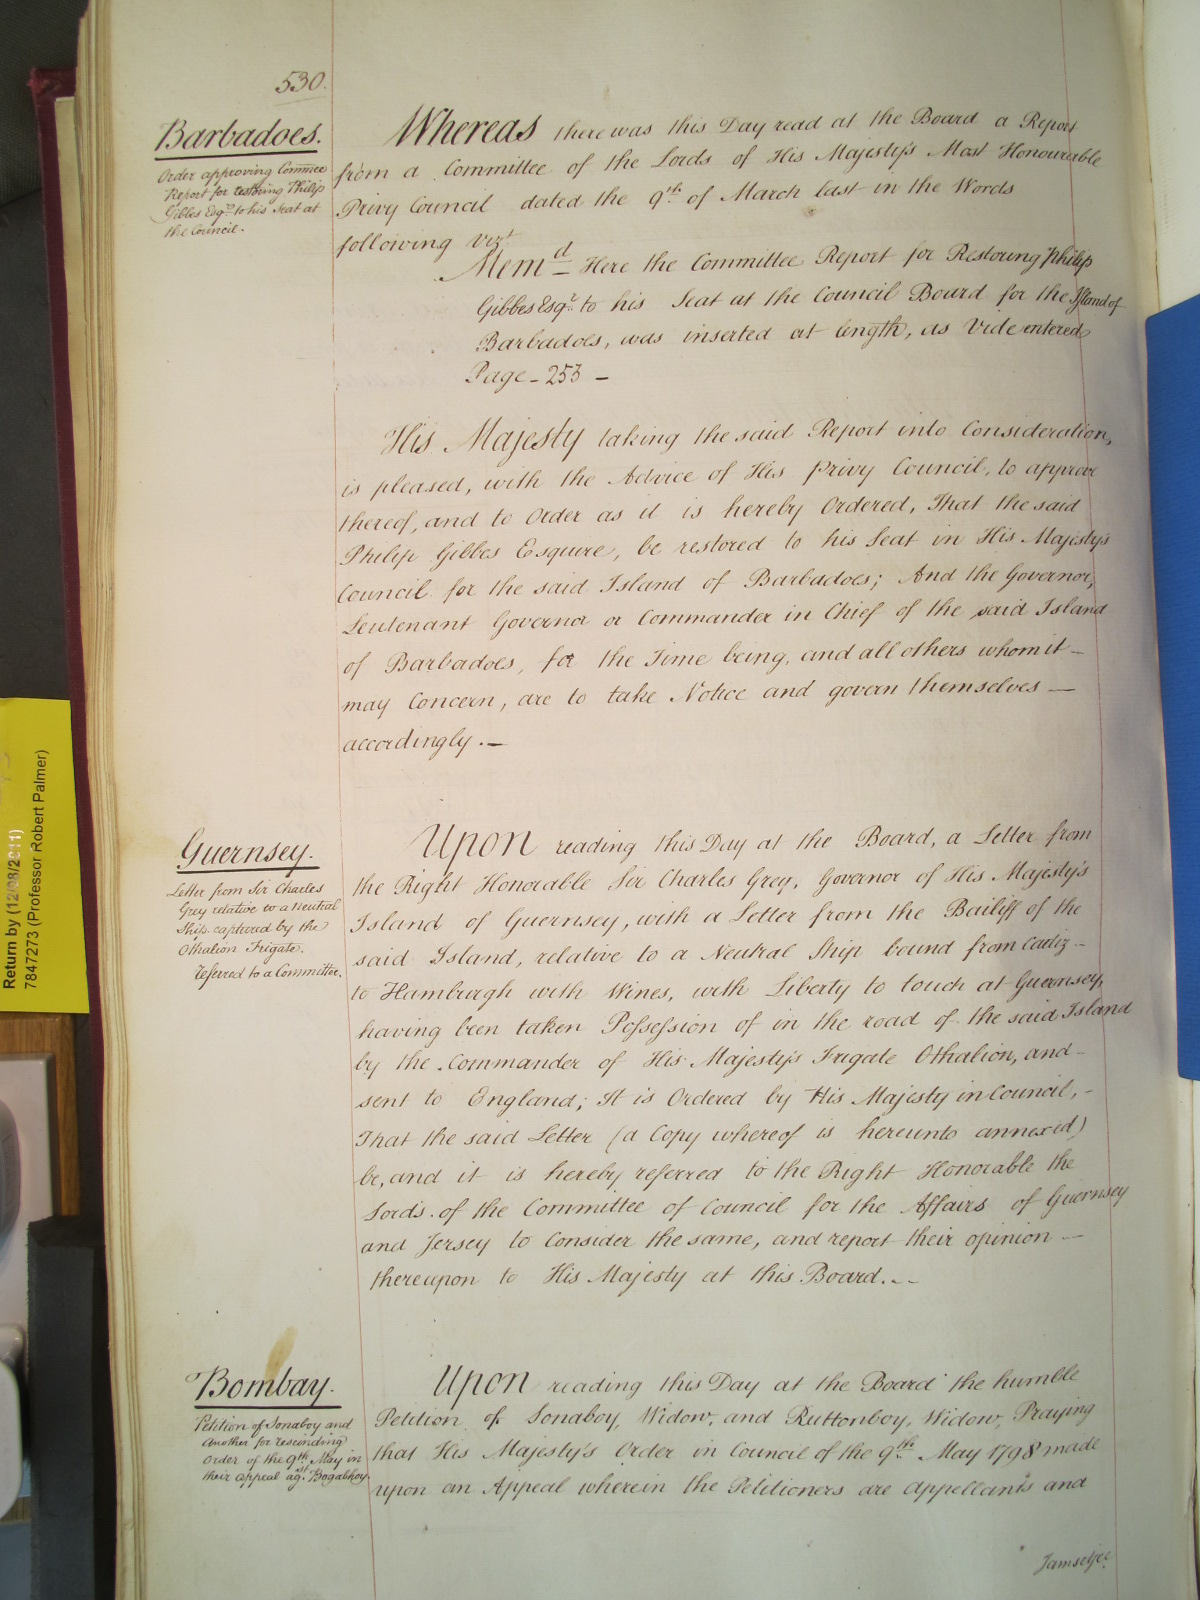 530.
Barbadoes.
Order approving Commee
Report for restoring Philip
Gibbes Esqr. to his Seat at
the Council.
Whereas there was this Day read at the Board a Report
from a Committee of the Lords of His Majesty's Most Honourable
Privy Council dated the 9th. of March last in the Words
following vizt.
Memd. Here the Committee Report for Restoring Philip
Gibbes Esqr. to his Seat at the Council Board for the Island of
Barbadoes, was inserted at length, as Vide entered
Page - 253 -
His Majesty taking the said Report into Consideration,
is pleased, with the Advice of His Privy Council, to approve
thereof, and to Order as it is hereby Ordered, That the said
Philip Gibbes Esquire, be restored to his Seat in His Majesty's
Council for the said Island of Barbadoes; And the Governor,
Leutenant Governor or Commander in Chief of the said Island
of Barbadoes, for the Time being, and all others whom it -
may Concern, are to take Notice and govern themselves -
accordingly. -
Guernsey.
Letter from Sir Charles
Grey relative to a Neutral
Ship captured by the
Othalion Frigate.
referred to a Committee.
Upon reading this Day at the Board, a Letter from
the Right Honorable Sir Charles Grey, Governor of His Majesty's
Island of Guernsey, with a Letter from the Bailiff of the
said Island, relative to a Neutral Ship bound from Cadiz -
to Hamburgh with Wines, with Liberty to touch at Guernsey,
having been taken Possession of in the road of the said Island
by the Commander of His Majesty's Frigate Othalion, and -
sent to England; It is Ordered by His Majesty in Council, -
That the said Letter (a Copy whereof is hereunto annexed)
be, and it is hereby referred to the Right Honorable the
Lords of the Committee of Council for the Affairs of Guernsey
and Jersey to Consider the same, and report their opinion -
thereupon to His Majesty at this Board. -
Bombay.
Petition of Sonaboy and
Another for rescinding
Order of the 9th. May in
their appeal agst. Bogabhoy.
Upon reading this Day at the Board the humble
Petition of Sonaboy, Widow, and Ruttonboy, Widow, Praying
that His Majesty's Order in Council of the 9th. May 1798 made
upon an Appeal wherein the Petitioners are appellants and
Jamsetjee
Return by (12/08/2011)
7847273 (Professor Robert Palmer)